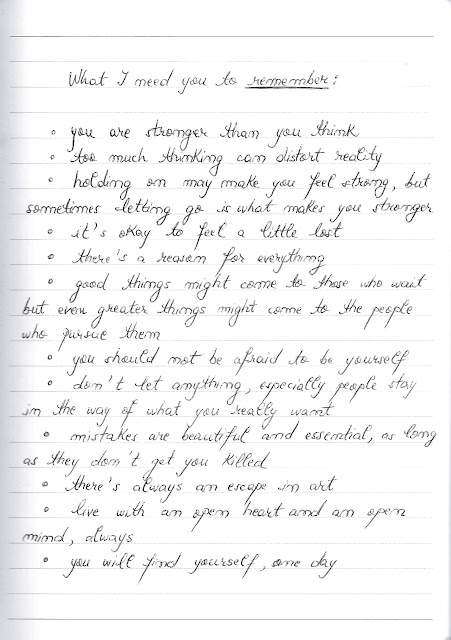 What I need you to remember:
• you are stronger than you think
• too much thinking can distort reality
• holding on may make you feel strong, but
sometimes letting go is what makes you stronger
• it's okay to feel a little lost
• there's a reason for everything
• good things might come to those who wait
but even greater things might come to the people
who pursue them
• you should not be afraid to be yourself
• don't let anything, especially people stay
in the way of what you really want
• mistakes are beautiful and essential, as long
as they don't get you killed
• there's always an escape in art
• live with an open heart and an open
mind, always
• you will find yourself, one day